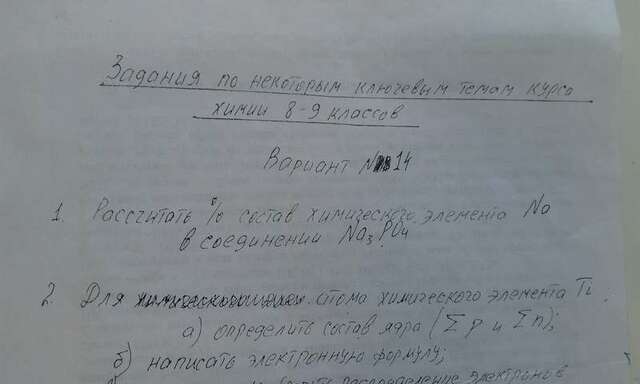 Задания по некоторым ключевым темам курса
химии 8-9 классов
Вариант №14
1. Рассчитать % состав химического элемента Na
в соединении Na₃PO₄
2. Для атома химического элемента Ti
а) определить состав ядра (Σp и Σn);
б) написать электронную формулу;
распределение электронов